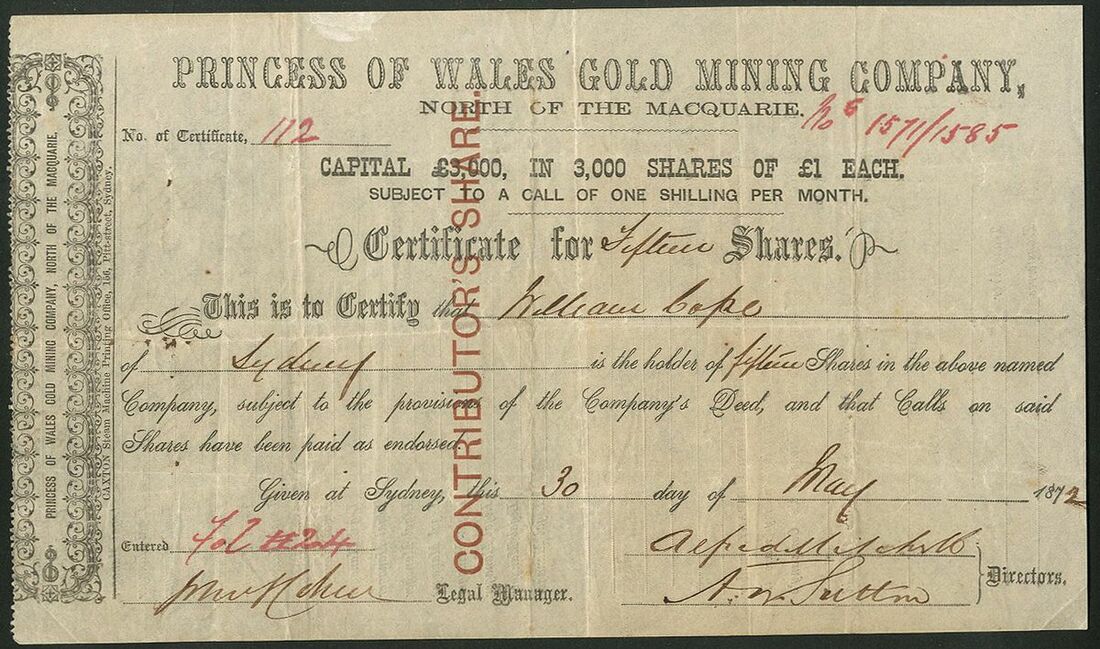 PRINCESS OF WALES GOLD MINING COMPANY,
NORTH OF THE MACQUARIE.
No. of Certificate, 112
Nos 1571/1585
CAPITAL £3,000, IN 3,000 SHARES OF £1 EACH.
SUBJECT TO A CALL OF ONE SHILLING PER MONTH.
Certificate for Fifteen Shares.
This is to Certify that William Cope
of Sydney is the holder of fifteen Shares in the above named
Company, subject to the provisions of the Company's Deed, and that Calls on said
Shares have been paid as endorsed.
Given at Sydney, this 30 day of May 1872
Entered Fol 24
Alfred Mitchell
A. W. Sutton
Directors.
Legal Manager.
CONTRIBUTOR'S SHARE.
PRINCESS OF WALES GOLD MINING COMPANY, NORTH OF THE MACQUARIE.
CAXTON Steam Machine Printing Office, 156, Pitt-street, Sydney.